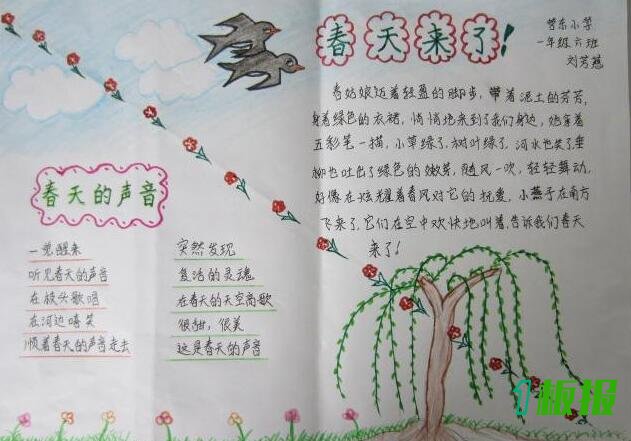 春天来了!
营东小学
一年级六班
刘芳慧
春姑娘迈着轻盈的脚步,带着泥土的芬芳,
身着绿色的衣裙,悄悄地来到了我们身边,她拿着
五彩笔一描,小草绿了,树叶绿了,河水也笑了垂
柳也吐出了绿色的嫩芽,随风一吹,轻轻舞动,
好像在炫耀着春风对它的抚爱,小燕子在南方
飞来了,它们在空中欢快地叫着,告诉我们春天
来了!
春天的声音
一觉醒来
听见春天的声音
在枝头歌唱
在河边嘻笑
顺着春天的声音走去
突然发现
复活的灵魂
在春天的天空高歌
很甜,很美
这是春天的声音
1板报